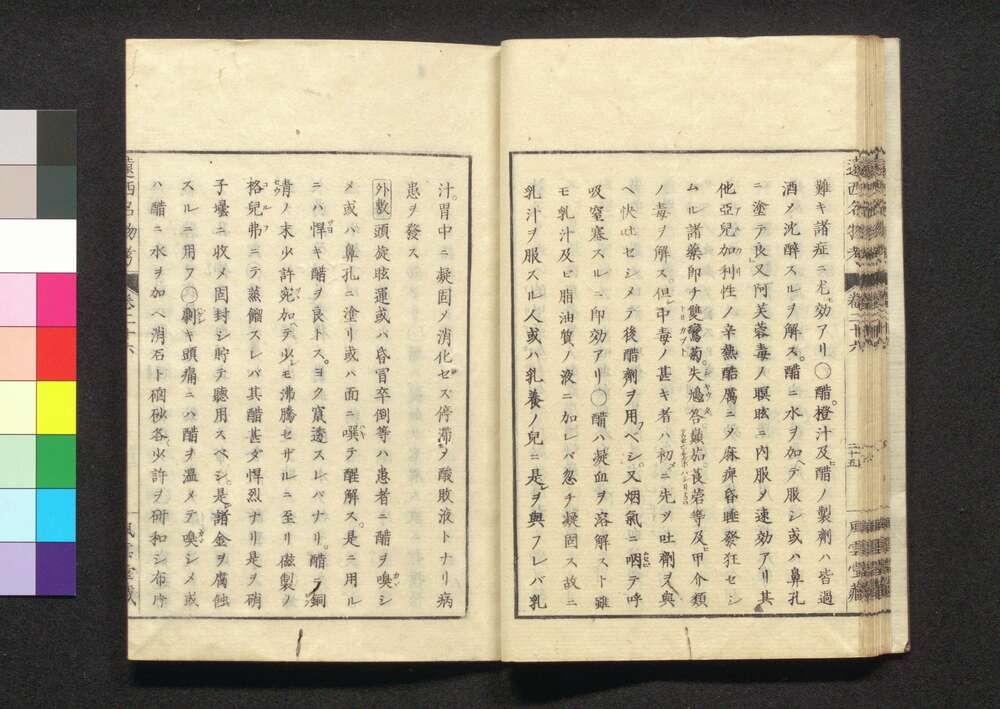 遠西名物考 卷二十六 二十五 風雲堂藏
難キ諸症ニ尤効アリ〇醋橙汁及ヒ醋ノ製劑ハ皆過
酒メ沈醉スルヲ解ス醋ニ水ヲ加ヘテ服シ或ハ鼻孔
ニ塗テ良又阿芙蓉毒ノ瞑眩ニ内服メ速効アリ其
他亞兒加利性ノ辛熱酷厲ニメ麻痺昏睡發狂セシ
ムル諸藥即チ雙鸞菊失鳩答顛茄莨菪等及甲介類
ノ毒ヲ解ス但中毒ノ甚キ者ハ初メニ先ツ吐劑ヲ與
ヘ快吐セシメテ後醋劑ヲ用フベシ又烟氣ニ咽テ呼
吸窒塞スルニ即効アリ〇醋ハ凝血ヲ溶解スト雖
モ乳汁及ヒ脂油質ノ液ニ加レバ忽チ凝固ス故ニ
乳汁ヲ服スル人或ハ乳養ノ兒ニ是ヲ與フレバ乳
汁胃中ニ凝固メ消化セス停滯メ酸敗液トナリ病
患ヲ發ス
外敷 頭旋眩運或ハ昏冒卒倒等ハ患者ニ醋ヲ嗅シ
メ或ハ鼻孔ニ塗リ或ハ面ニ噀テ醒解ス是ニ用ル
ニハ悍キ醋ヲ良トスヨク竄透スレバナリ醋ヲ銅
ノ末少許宛加テ少モ沸騰セザルニ至リ磁製ノ
格兒弗ニテ蒸餾スレバ其醋甚ダ悍烈ナリ是ヲ硝
子壜ニ收メ固封シ貯テ聽用スベシ是諸金ヲ腐蝕
スルニ用フ〇劇キ頭痛ニハ醋ヲ溫メテ嗅シメ或
ハ醋ニ水ヲ加ヘ消石ト硇砂各少許ヲ研和シ布片
遠西名物考 卷二十六